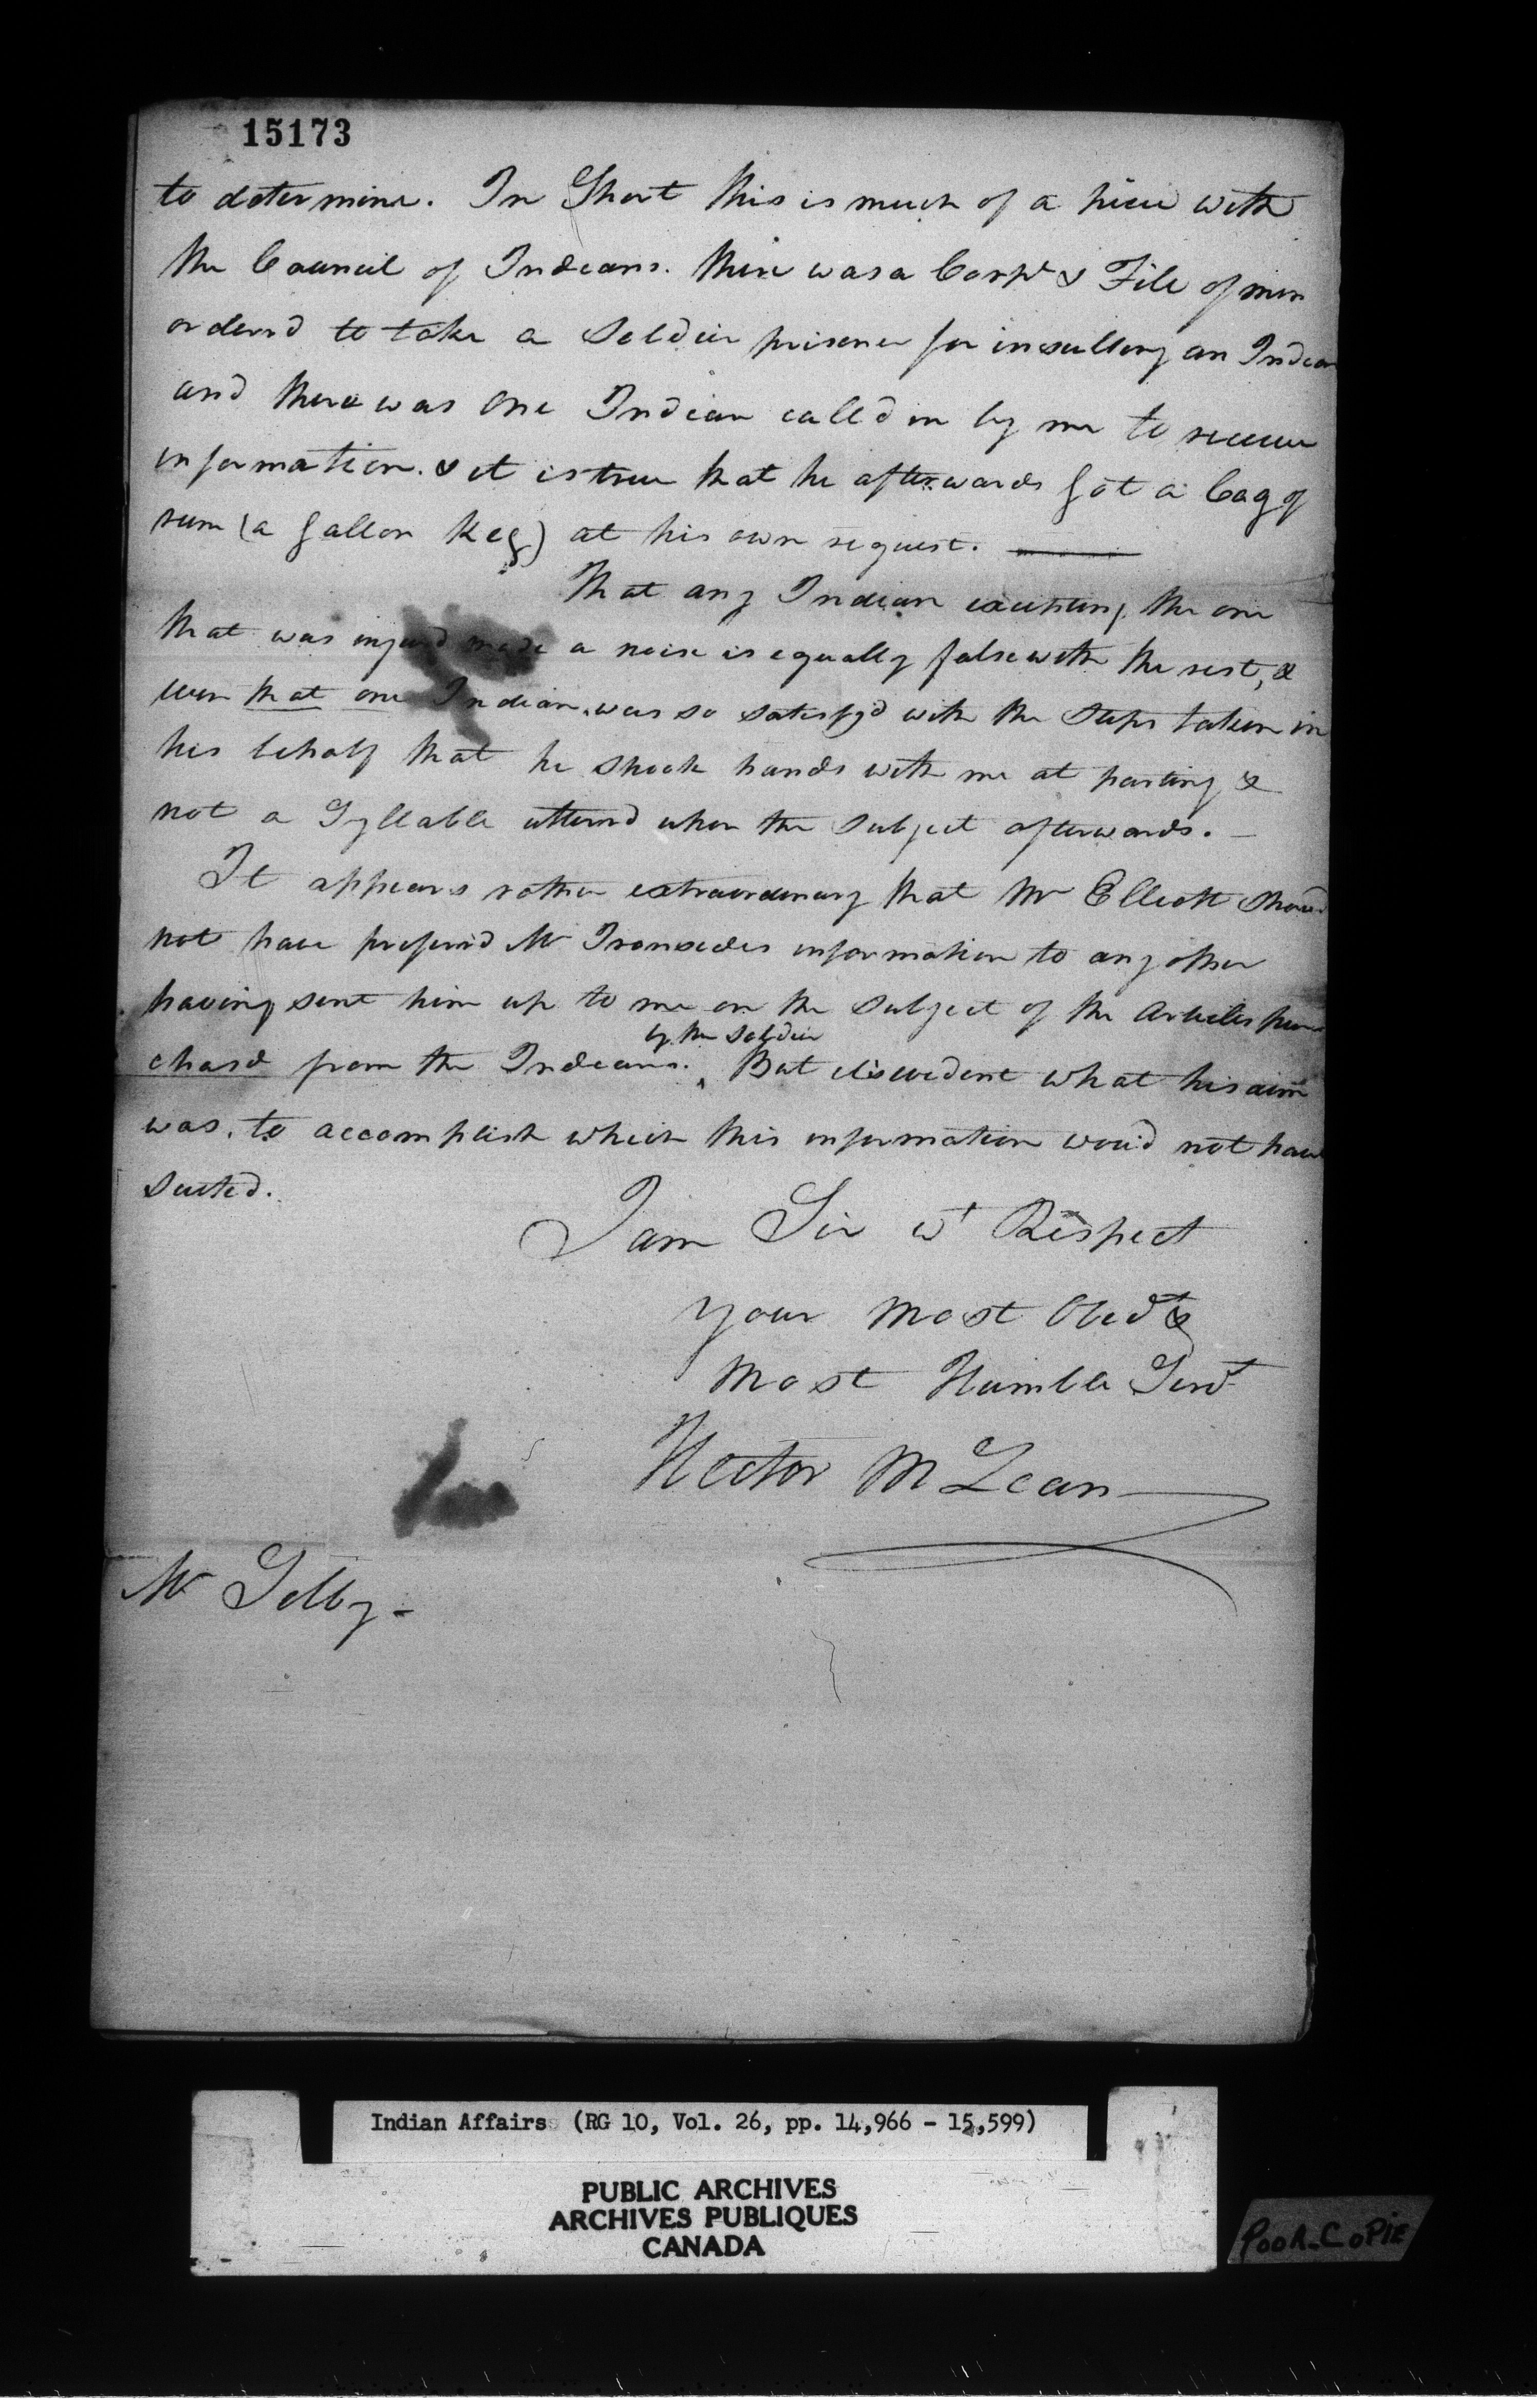 15173
to determine. In Short this is much of a piece with
the Council of Indians. there was a Corpl & File of men
orderd to take a Soldier prisoner for insulting an Indian
and there was One Indian call'd in by me to receive
information. & it is true that he afterwards got a Cag of
rum (a gallon Keg) at his own request.
That any Indian excepting the one
that was injurd made a noise is equally false with the rest, &
even that one Indian was so satisfy'd with the Steps taken in
his behalf that he shook hands with me at parting &
not a Syllable utterd upon the Subject afterwards.
It appears rather extraordinary that Mr Elliott should
not have preferrd Mr Ironsides information to any other
having sent him up to me on the Subject of the Articles pur
chasd from the Indians. by the Soldier But it is evident what his aim
was. to accomplish which this information wou'd not have
suited.
I am Sir wt Respect
your most Obedt &
most Humble Servt
Hector McLean
Mr Selby-
Indian Affairs (RG 10, Vol. 26, pp. 14,966 - 15,599)
PUBLIC ARCHIVES
ARCHIVES PUBLIQUES
CANADA
POOR COPIE